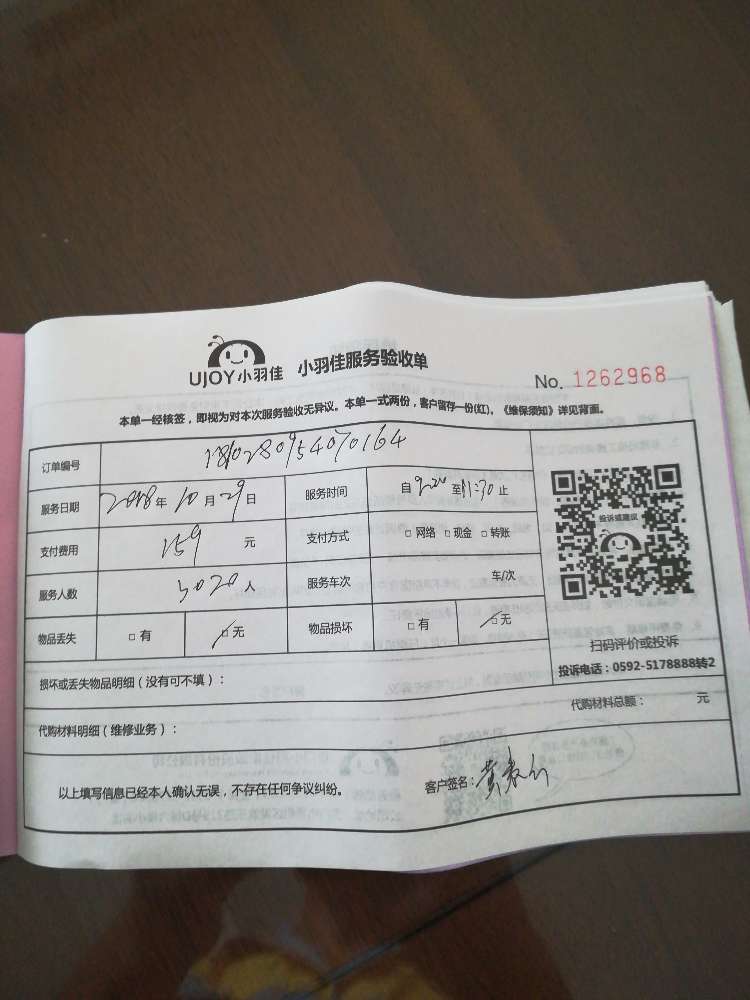 UJOY小羽佳 小羽佳服务验收单
No. 1262968
本单一经核签，即视为对本次服务验收无异议。本单一式两份，客户留存一份(红)。《维保须知》详见背面。
订单编号 1810280954070164
服务日期 2018年10月29日 服务时间 自9:20至11:30止
支付费用 159 元 支付方式 □ 网络 □ 现金 □ 转账
服务人数 人 服务车次 车/次
物品丢失 □ 有 □ 无 物品损坏 □ 有 □ 无
投诉或建议
扫码评价或投诉
投诉电话：0592-5178888转2
损坏或丢失物品明细（没有可不填）：
代购材料明细（维修业务）： 代购材料总额： 元
以上填写信息已经本人确认无误，不存在任何争议纠纷。 客户签名：